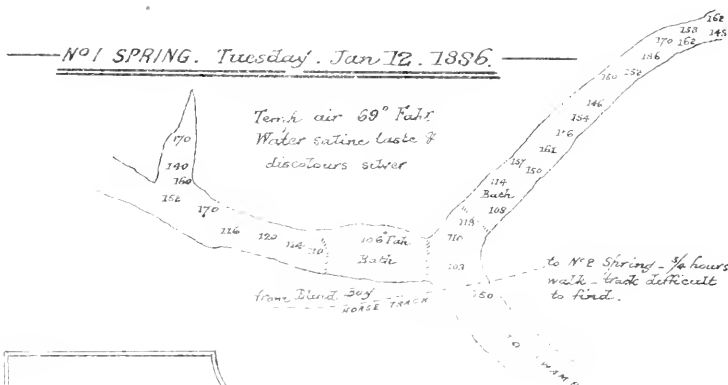 Nº1 SPRING. Tuesday. Jan 12. 1886.
Temp air 69° Fahr
Water saline taste &
discolours silver
170
140
160
152
170
116
120
114
110
106° Fah
Bath
162
158
148
170
162
186
152
150
146
154
161
157
150
114
Bath
108
118
110
108
to Nº2 Spring - 3/4 hours
walk - track difficult
to find.
from Bay
HORSE TRACK
50
TO SWAMP